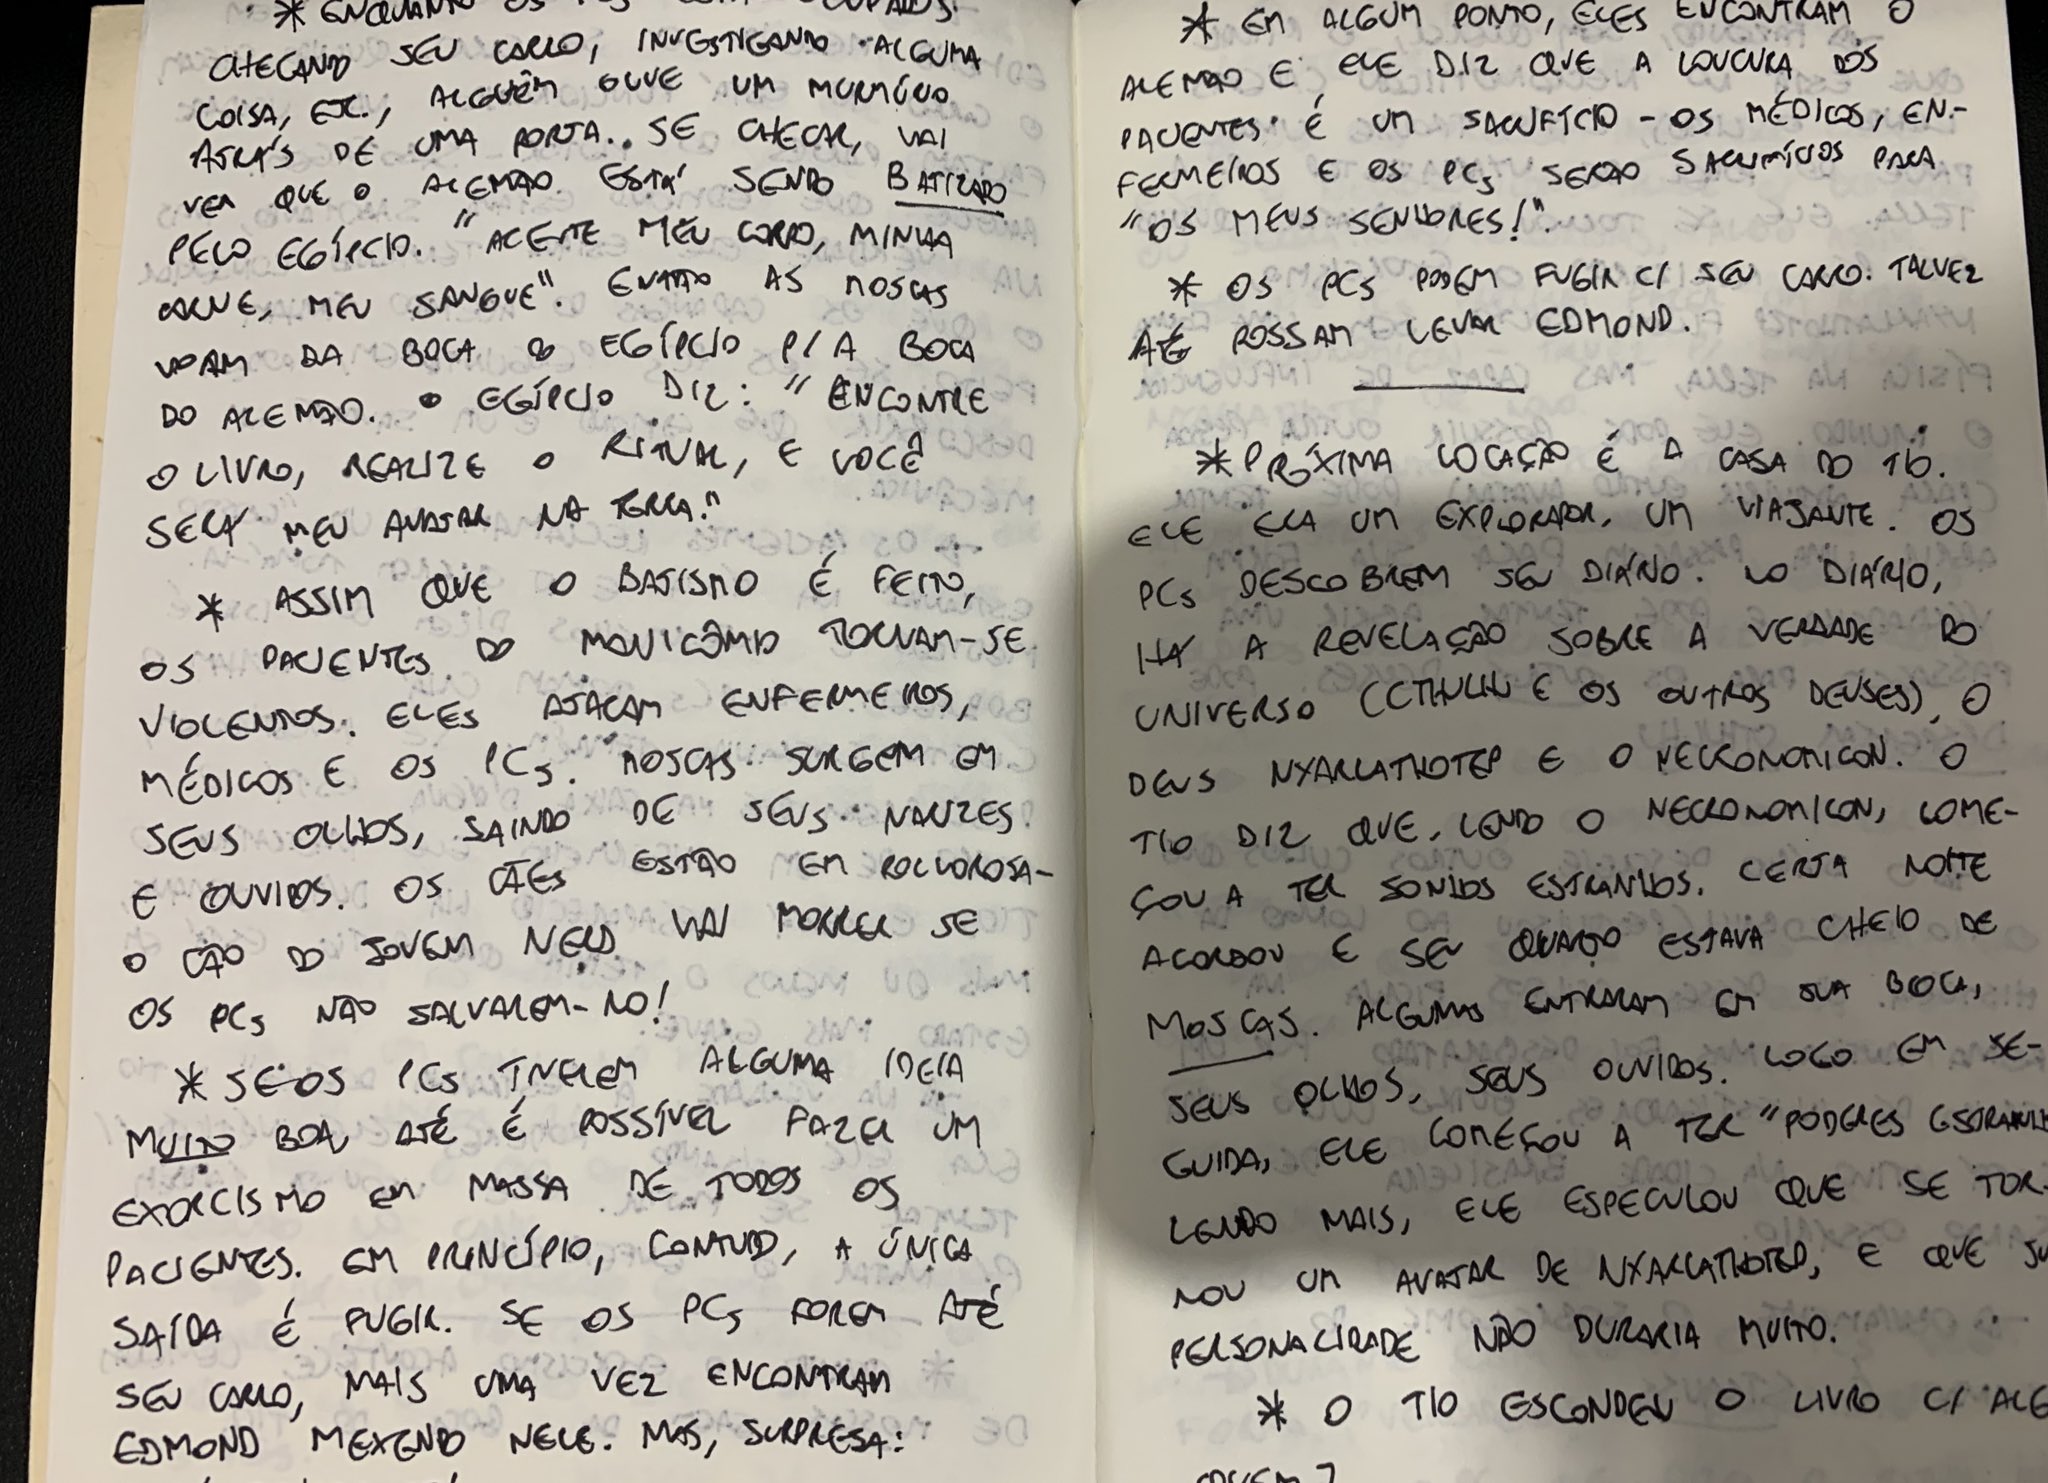 * ENQUANTO OS PCs
CHECANDO SEU CARRO, INVESTIGANDO ALGUMA
COISA, ETC., ALGUÉM OUVE UM MURMÚRIO
ATRÁS DE UMA PORTA. SE CHECAR, VAI
VER QUE O ALEMÃO ESTÁ SENDO BATIZADO
PELO EGÍPCIO. "ACEITE MEU CORPO, MINHA
CARNE, MEU SANGUE". ENTÃO AS MOSCAS
VOAM DA BOCA DO EGÍPCIO P/ A BOCA
DO ALEMÃO. O EGÍPCIO DIZ: "ENCONTRE
O LIVRO, REALIZE O RITUAL, E VOCÊ
SERÁ MEU AVATAR NA TERRA."
* ASSIM QUE O BATISMO É FEITO,
OS PACIENTES DO MANICÔMIO TORNAM-SE
VIOLENTOS. ELES ATACAM ENFERMEIROS,
MÉDICOS E OS PCs. MOSCAS SURGEM EM
SEUS OLHOS, SAINDO DE SEUS NARIZES
E OUVIDOS. OS CÃES ESTÃO EM POLVOROSA-
O CÃO DO JOVEM NERD VAI MORRER SE
OS PCs NÃO SALVAREM-NO!
* SE OS PCs TIVEREM ALGUMA IDEIA
MUITO BOA, ATÉ É POSSÍVEL FAZER UM
EXORCISMO EM MASSA DE TODOS OS
PACIENTES. EM PRINCÍPIO, CONTUDO, A ÚNICA
SAÍDA É FUGIR. SE OS PCs FOREM ATÉ
SEU CARRO, MAIS UMA VEZ ENCONTRAM
EDMOND MEXENDO NELE. MAS, SURPRESA:
* EM ALGUM PONTO, ELES ENCONTRAM O
ALEMÃO E ELE DIZ QUE A LOUCURA DOS
PACIENTES É UM SACRIFÍCIO - OS MÉDICOS, EN-
FERMEIROS E OS PCs SERÃO SACRIFÍCIOS PARA
"OS MEUS SENHORES!".
* OS PCs PODEM FUGIR C/ SEU CARRO. TALVEZ
ATÉ POSSAM LEVAR EDMOND.
* PRÓXIMA LOCAÇÃO É A CASA DO TIO.
ELE ERA UM EXPLORADOR, UM VIAJANTE. OS
PCs DESCOBREM SEU DIÁRIO. NO DIÁRIO,
HÁ A REVELAÇÃO SOBRE A VERDADE DO
UNIVERSO (CTHULHU E OS OUTROS DEUSES), O
DEUS NYARLATHOTEP E O NECRONOMICON. O
TIO DIZ QUE, LENDO O NECRONOMICON, COME-
ÇOU A TER SONHOS ESTRANHOS. CERTA NOITE
ACORDOU E SEU QUARTO ESTAVA CHEIO DE
MOSCAS. ALGUMAS ENTRARAM EM SUA BOCA,
SEUS OLHOS, SEUS OUVIDOS. LOGO EM SE-
GUIDA, ELE COMEÇOU A TER "PODERES
LENDO MAIS, ELE ESPECULOU QUE SE TOR-
NOU UM AVATAR DE NYARLATHOTEP, E QUE
PERSONALIDADE NÃO DURARIA MUITO.
* O TIO ESCONDEU O LIVRO C/